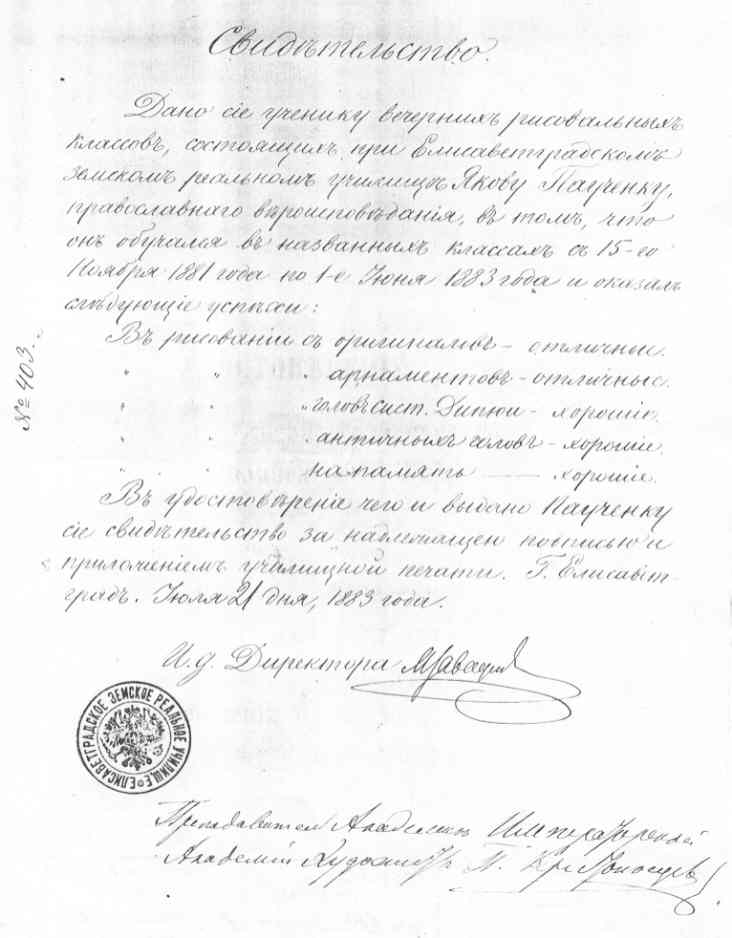 Свидѣтельство.
Дано сіе ученику вечернихъ рисовальныхъ
классовъ, состоящихъ при Елисаветградскомъ
земскомъ реальномъ училищѣ Якову Паученку,
православнаго вѣроисповѣданія, въ томъ, что
онъ обучался въ названныхъ классахъ съ 15-го
Ноября 1881 года по 1-е Іюня 1883 года и оказалъ
слѣдующіе успѣхи:
Въ рисованіи съ оригиналовъ - отличные.
" " " арнаментовъ - отличные.
" " " головъ сист. Дюпюи - хорошіе.
" " " античныхъ головъ - хорошіе.
" " на память — хорошіе.
Въ удостовѣреніе чего и выдано Паученку
сіе свидѣтельство за надлежащей подписью и
приложеніемъ училищной печати. Г. Елисавет-
градъ. Іюля 21 дня, 1883 года.
№ 403.
И. д. Директора
ЕЛИСАВЕТГРАДСКОЕ ЗЕМСКОЕ РЕАЛЬНОЕ УЧИЛИЩЕ
Преподаватель Императорской
Академіи Художествъ П. Крестоносцевъ